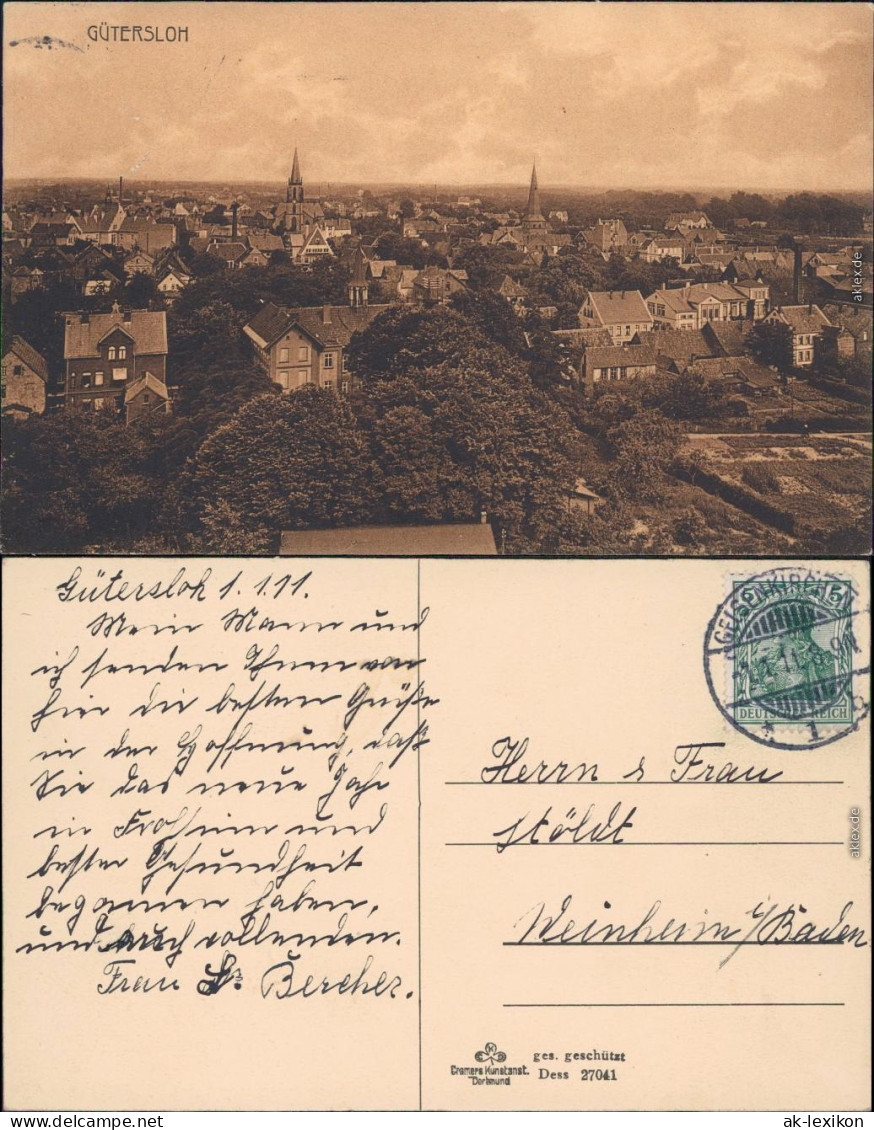 GÜTERSLOH
aklex.de
Gütersloh 1.1.11.
Mein Mann und
ich senden Ihnen von
hier die besten Grüße
in der Hoffnung, daß
Sie das neue Jahr
in Frohsinn und
bester Gesundheit
begonnen haben,
und auch vollenden.
Frau Dr. Bercher.
GELSENKIRCHEN
1.1.11. 8-9N
* 1 b
5
DEUTSCHES REICH
Herrn & Frau
Stöldt
aklex.de
Weinheim i/Baden
Cramers Kunstanst.
Dortmund
ges. geschützt
Dess 27041
www.delcampe.net
ak-lexikon